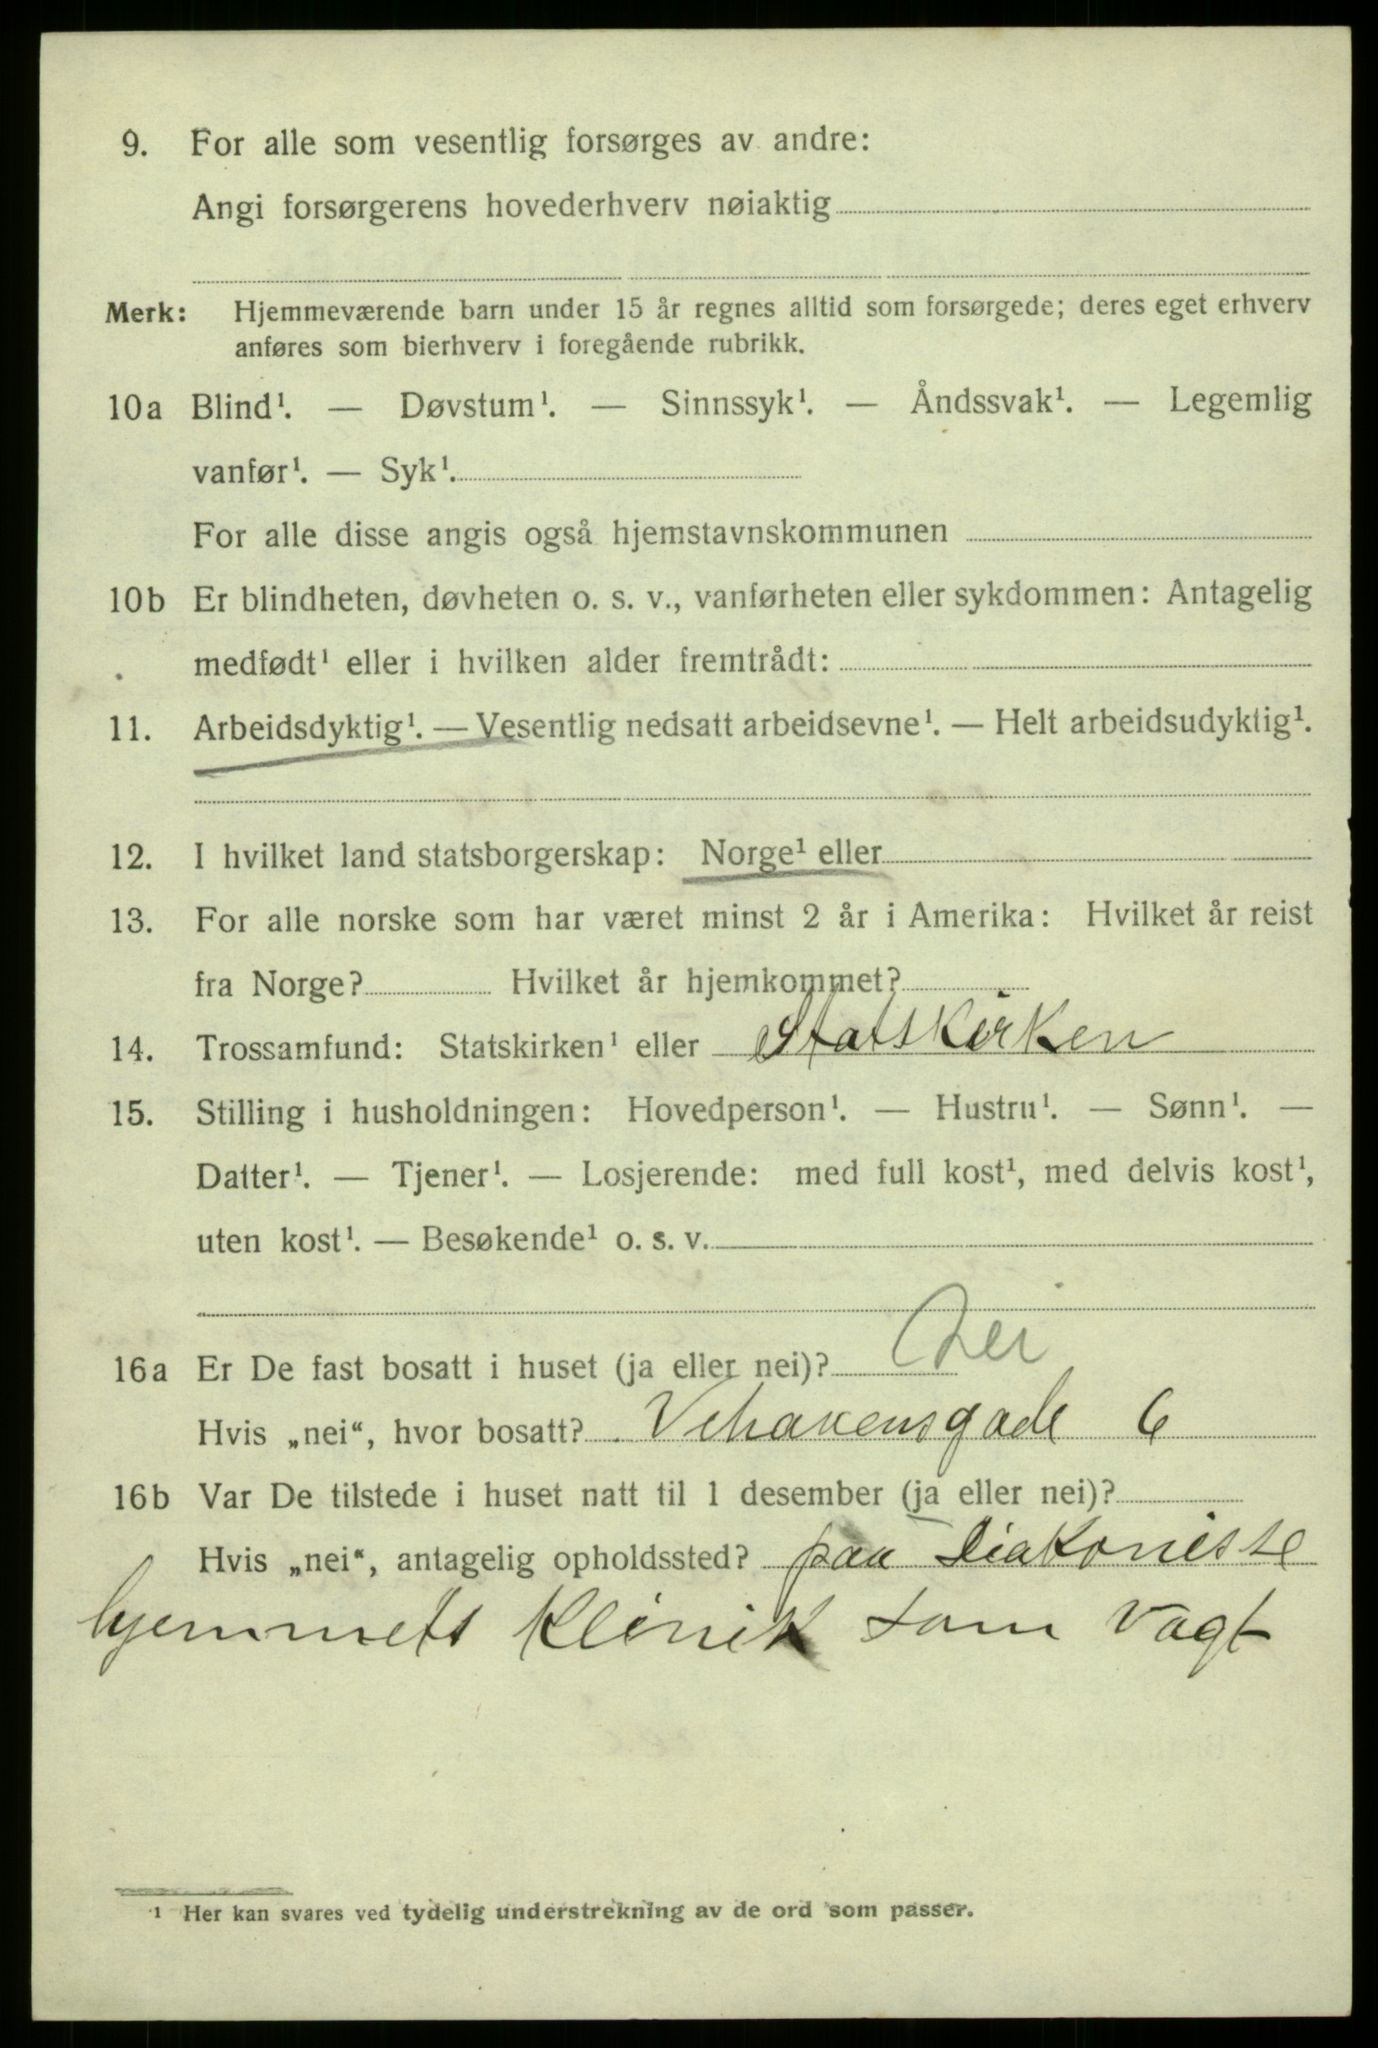 9. For alle som vesentlig forsørges av andre:
Angi forsørgerens hovederhverv nøiaktig
Merk: Hjemmeværende barn under 15 år regnes alltid som forsørgede; deres eget erhverv
anføres som bierhverv i foregående rubrikk.
10a Blind¹. — Døvstum¹. — Sinnssyk¹. — Åndssvak¹. — Legemlig
vanfør¹. — Syk¹.
For alle disse angis også hjemstavnskommunen
10b Er blindheten, døvheten o. s. v., vanførheten eller sykdommen: Antagelig
medfødt¹ eller i hvilken alder fremtrådt:
11. Arbeidsdyktig¹. — Vesentlig nedsatt arbeidsevne¹. — Helt arbeidsudyktig¹.
12. I hvilket land statsborgerskap: Norge¹ eller
13. For alle norske som har været minst 2 år i Amerika: Hvilket år reist
fra Norge? Hvilket år hjemkommet?
14. Trossamfund: Statskirken¹ eller Statskirken
15. Stilling i husholdningen: Hovedperson¹. — Hustru¹. — Sønn¹. —
Datter¹. — Tjener¹. — Losjerende: med full kost¹, med delvis kost¹,
uten kost¹. — Besøkende¹ o. s. v.
16a Er De fast bosatt i huset (ja eller nei)? Nei
Hvis „nei“, hvor bosatt? 6
16b Var De tilstede i huset natt til 1 desember (ja eller nei)?
Hvis „nei“, antagelig opholdssted? paa Diakonisse
hjemmets Klinik som Vagt
¹ Her kan svares ved tydelig understrekning av de ord som passer.